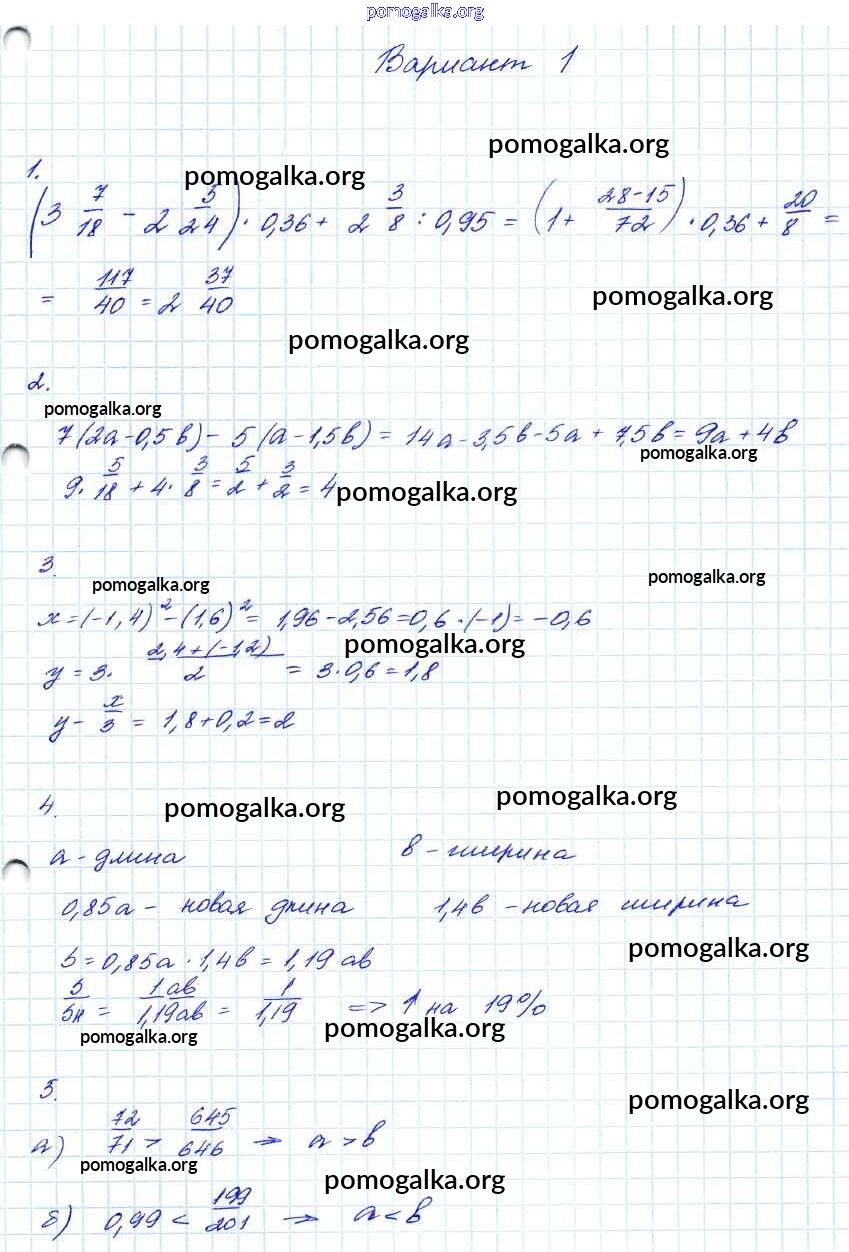 pomogalka.org
Вариант 1
pomogalka.org
1.
pomogalka.org
(3 7/18 - 2 5/24) · 0,36 + 2 3/8 : 0,95 = (1 + 28-15/72) · 0,36 + 20/8 =
= 117/40 = 2 37/40
pomogalka.org
pomogalka.org
2.
pomogalka.org
7(2a-0,5b) - 5(a-1,5b) = 14a-3,5b-5a+7,5b = 9a+4b
pomogalka.org
9 · 5/18 + 4 · 3/8 = 5/2 + 3/2 = 4
pomogalka.org
3.
pomogalka.org
pomogalka.org
x = (-1,4)² - (1,6)² = 1,96 - 2,56 = 0,6 · (-1) = -0,6
pomogalka.org
y = 3 · 2,4+(-1,2)/2 = 3·0,6 = 1,8
y - x/3 = 1,8+0,2 = 2
4.
pomogalka.org
pomogalka.org
a - длина b - ширина
0,85a - новая длина 1,4b - новая ширина
pomogalka.org
S = 0,85a · 1,4b = 1,19 ab
S/Sн = 1ab/1,19ab = 1/1,19 => ↑ на 19%
pomogalka.org
pomogalka.org
5.
pomogalka.org
а) 72/71 > 645/646 → a > b
pomogalka.org
pomogalka.org
б) 0,99 < 199/201 → a < b